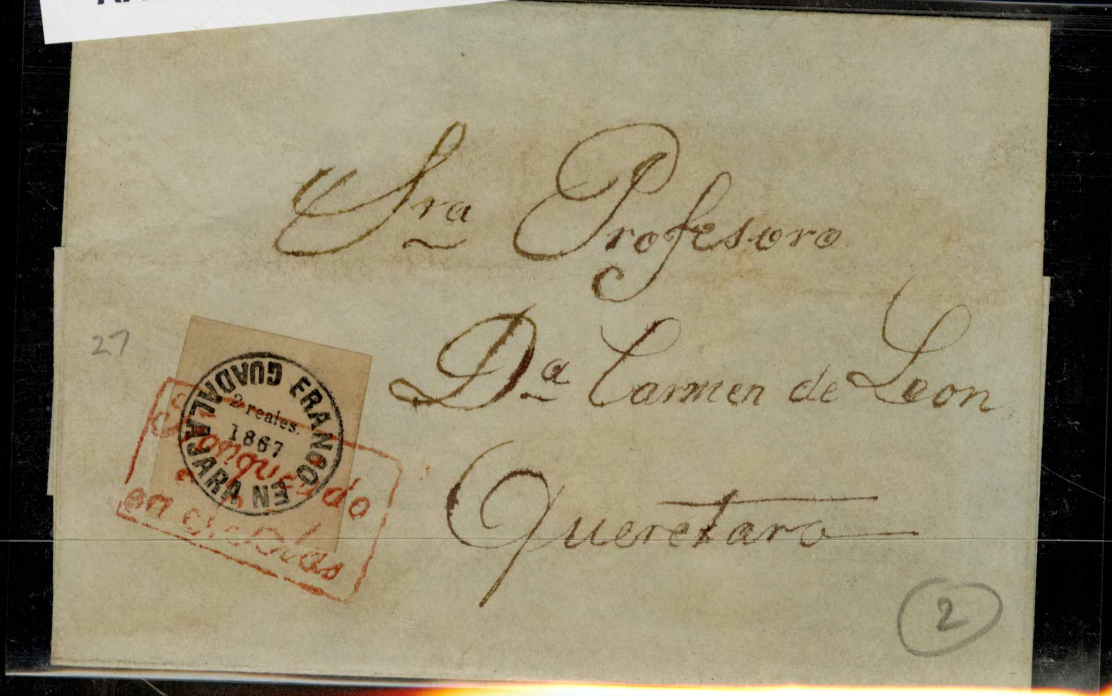 Sra Profesora
Da Carmen de Leon
Queretaro
27
FRANCO EN GUADALAJARA
2 reales.
1867
Franqueado
en
2